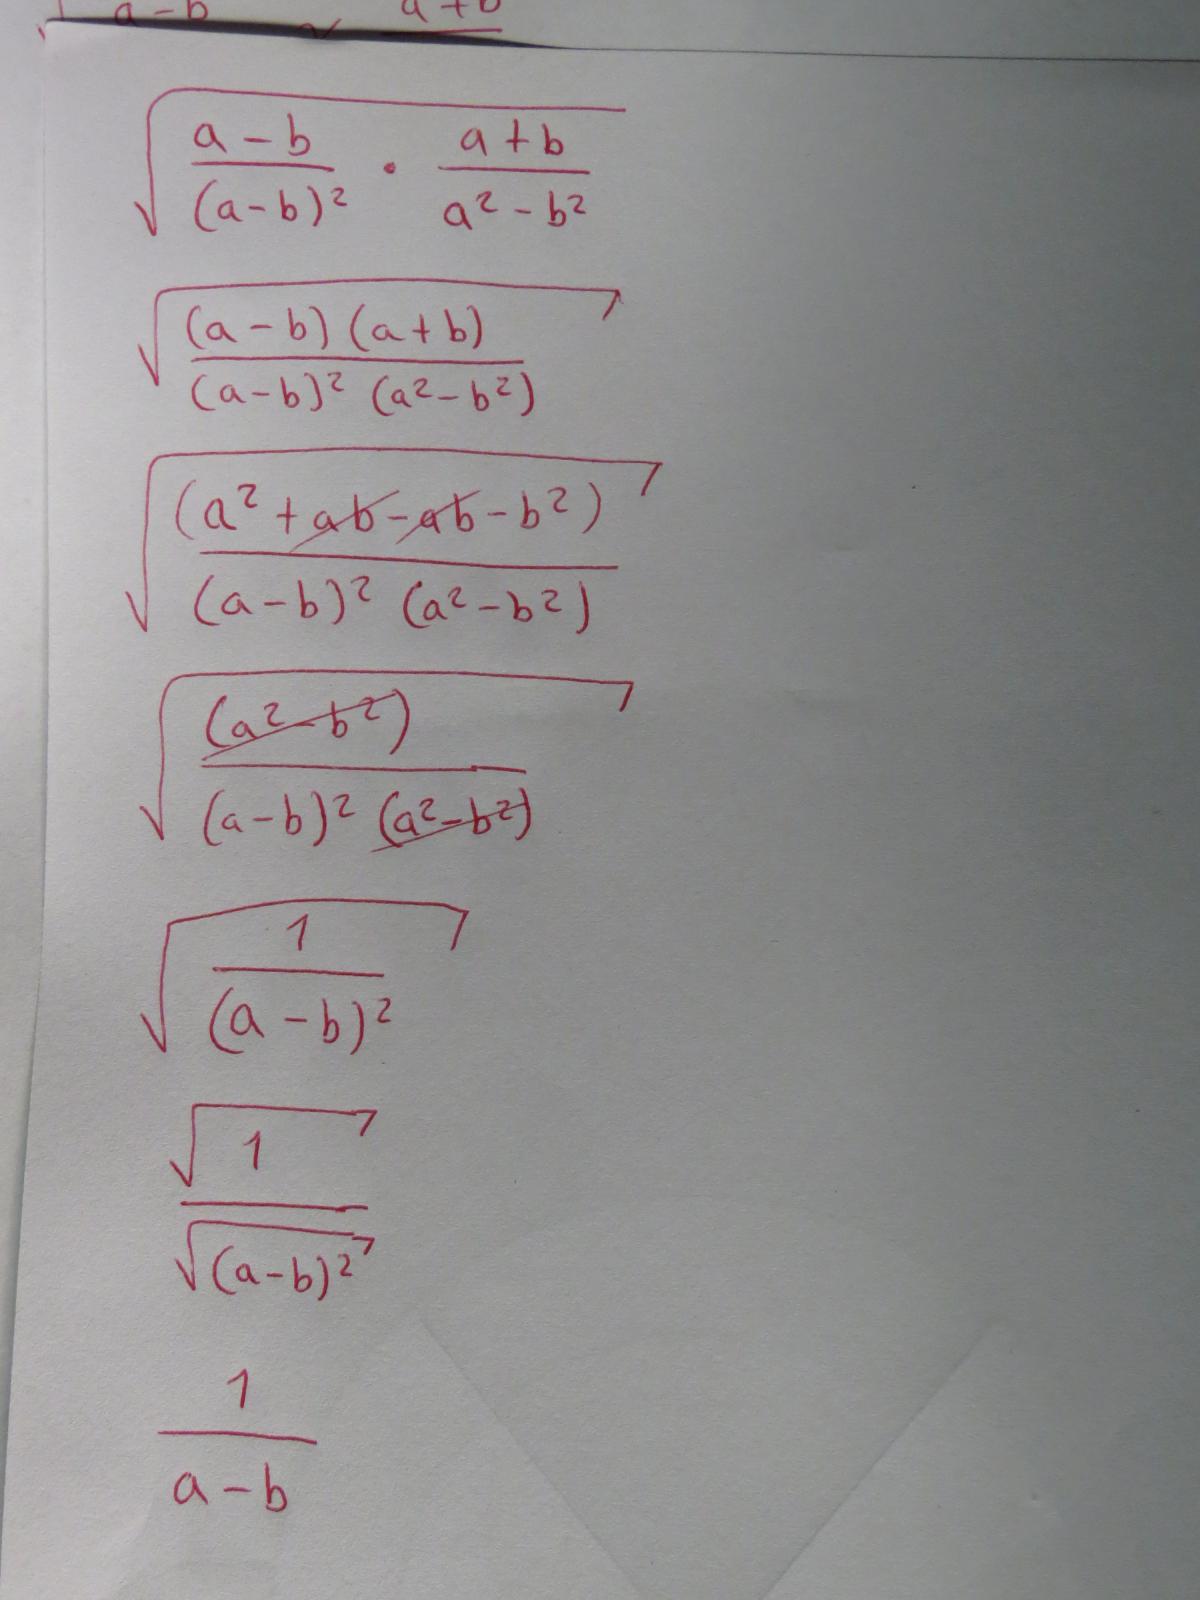 a-b a+b
√((a-b)/(a-b)² · (a+b)/(a²-b²))
√((a-b)(a+b)/((a-b)²(a²-b²)))
√((a²+ab-ab-b²)/((a-b)²(a²-b²)))
√((a²-b²)/((a-b)²(a²-b²)))
√(1/(a-b)²)
√1/√(a-b)²
1/(a-b)